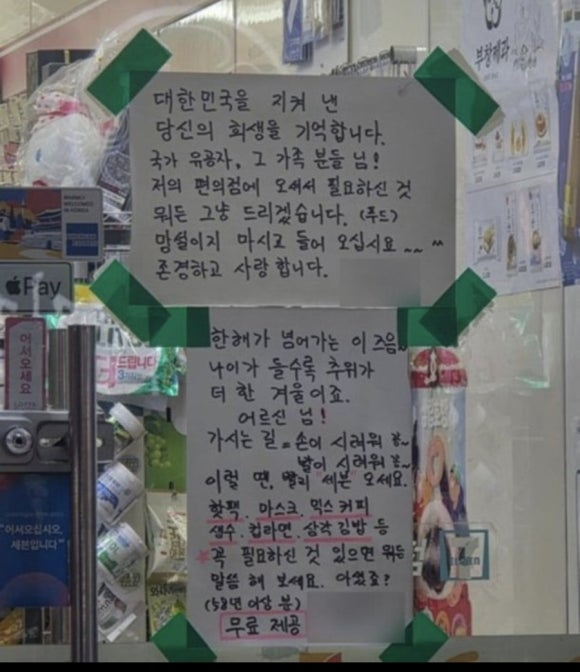 대한민국을 지켜 낸
당신의 희생을 기억합니다.
국가 유공자, 그 가족 분들 님!
저의 편의점에 오셔서 필요하신 것
뭐든 그냥 드리겠습니다. (푸드)
망설이지 마시고 들어 오십시요~~ ^^
존경하고 사랑합니다.
한해가 넘어가는 이 즈음~
나이가 들수록 추위가
더 한 겨울이죠.
어르신 님!
가시는 길 = 손이 시려워 꽁~
발이 시려워 꽁~
이럴 땐, 빨리 "세븐" 오세요.
핫팩. 마스크. 믹스 커피
생수. 컵라면. 삼각 김밥 등
꼭 필요하신 것 있으면 뭐든
말씀 해 보세요. 아셨죠?
(58년 이상 분)
무료 제공
부창제과
WARMLY
WELCOMED
IN KOREA
Pay
어서오세요
드립니다
"어서오십시오,
세븐입니다"